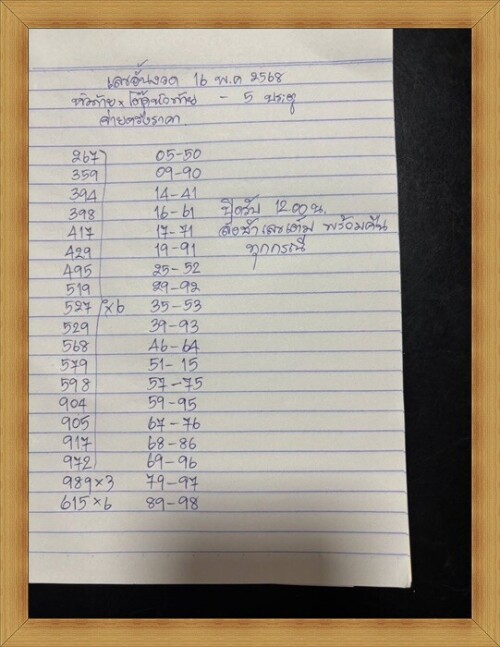 เลขอั้นงวด 16 พ.ค 2568
- 5 ประตู
จ่ายครึ่งราคา
267 05-50
359 09-90
394 14-41
398 16-61 ปิดรับ 12.00 น.
417 17-71 ส่งซ้ำเลขเต็ม พร้อมคืน
429 19-91 ทุกกรณี
495 25-52
519 29-92
527 ×6 35-53
529 39-93
568 46-64
579 51-15
598 57-75
904 59-95
905 67-76
917 68-86
972 69-96
989×3 79-97
615×6 89-98